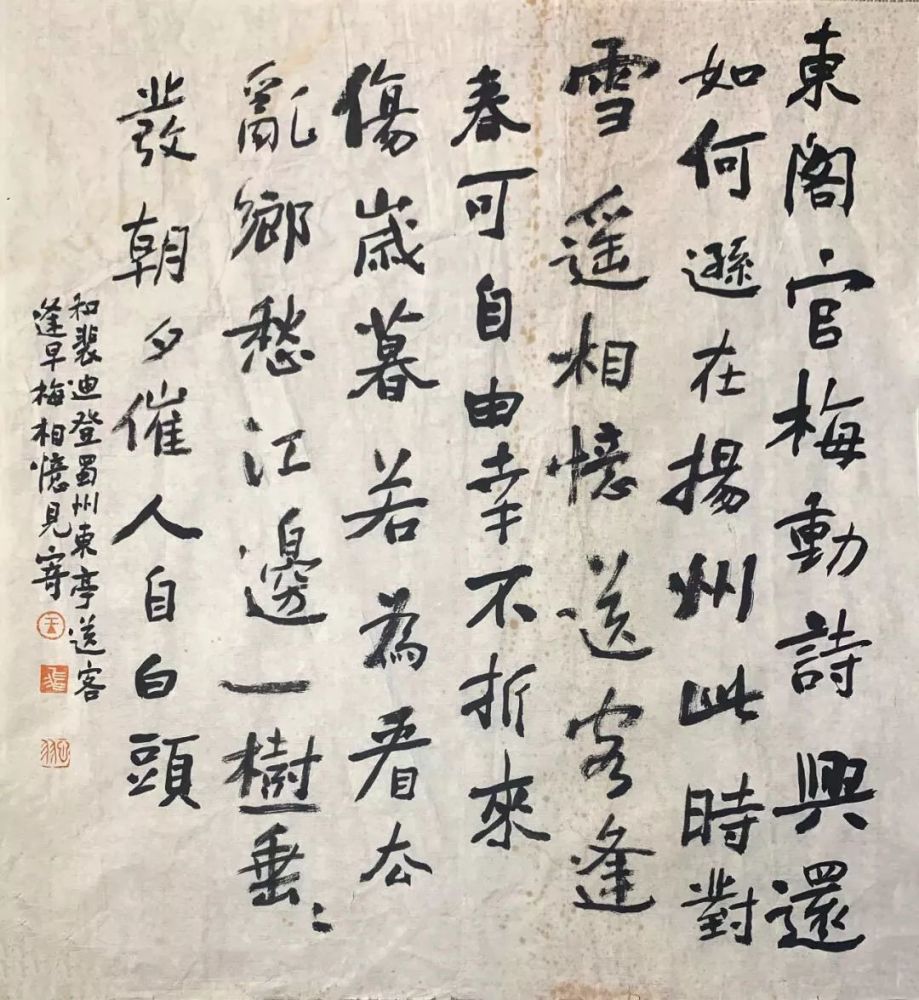 東閣官梅動詩興還
如何遜在揚州此時對
雪遥相憶送客逢
春可自由幸不折來
傷歲暮若為看去
亂鄉愁江邊一樹垂〻
發朝夕催人自白頭
和裴迪登蜀州東亭送客
逢早梅相憶見寄